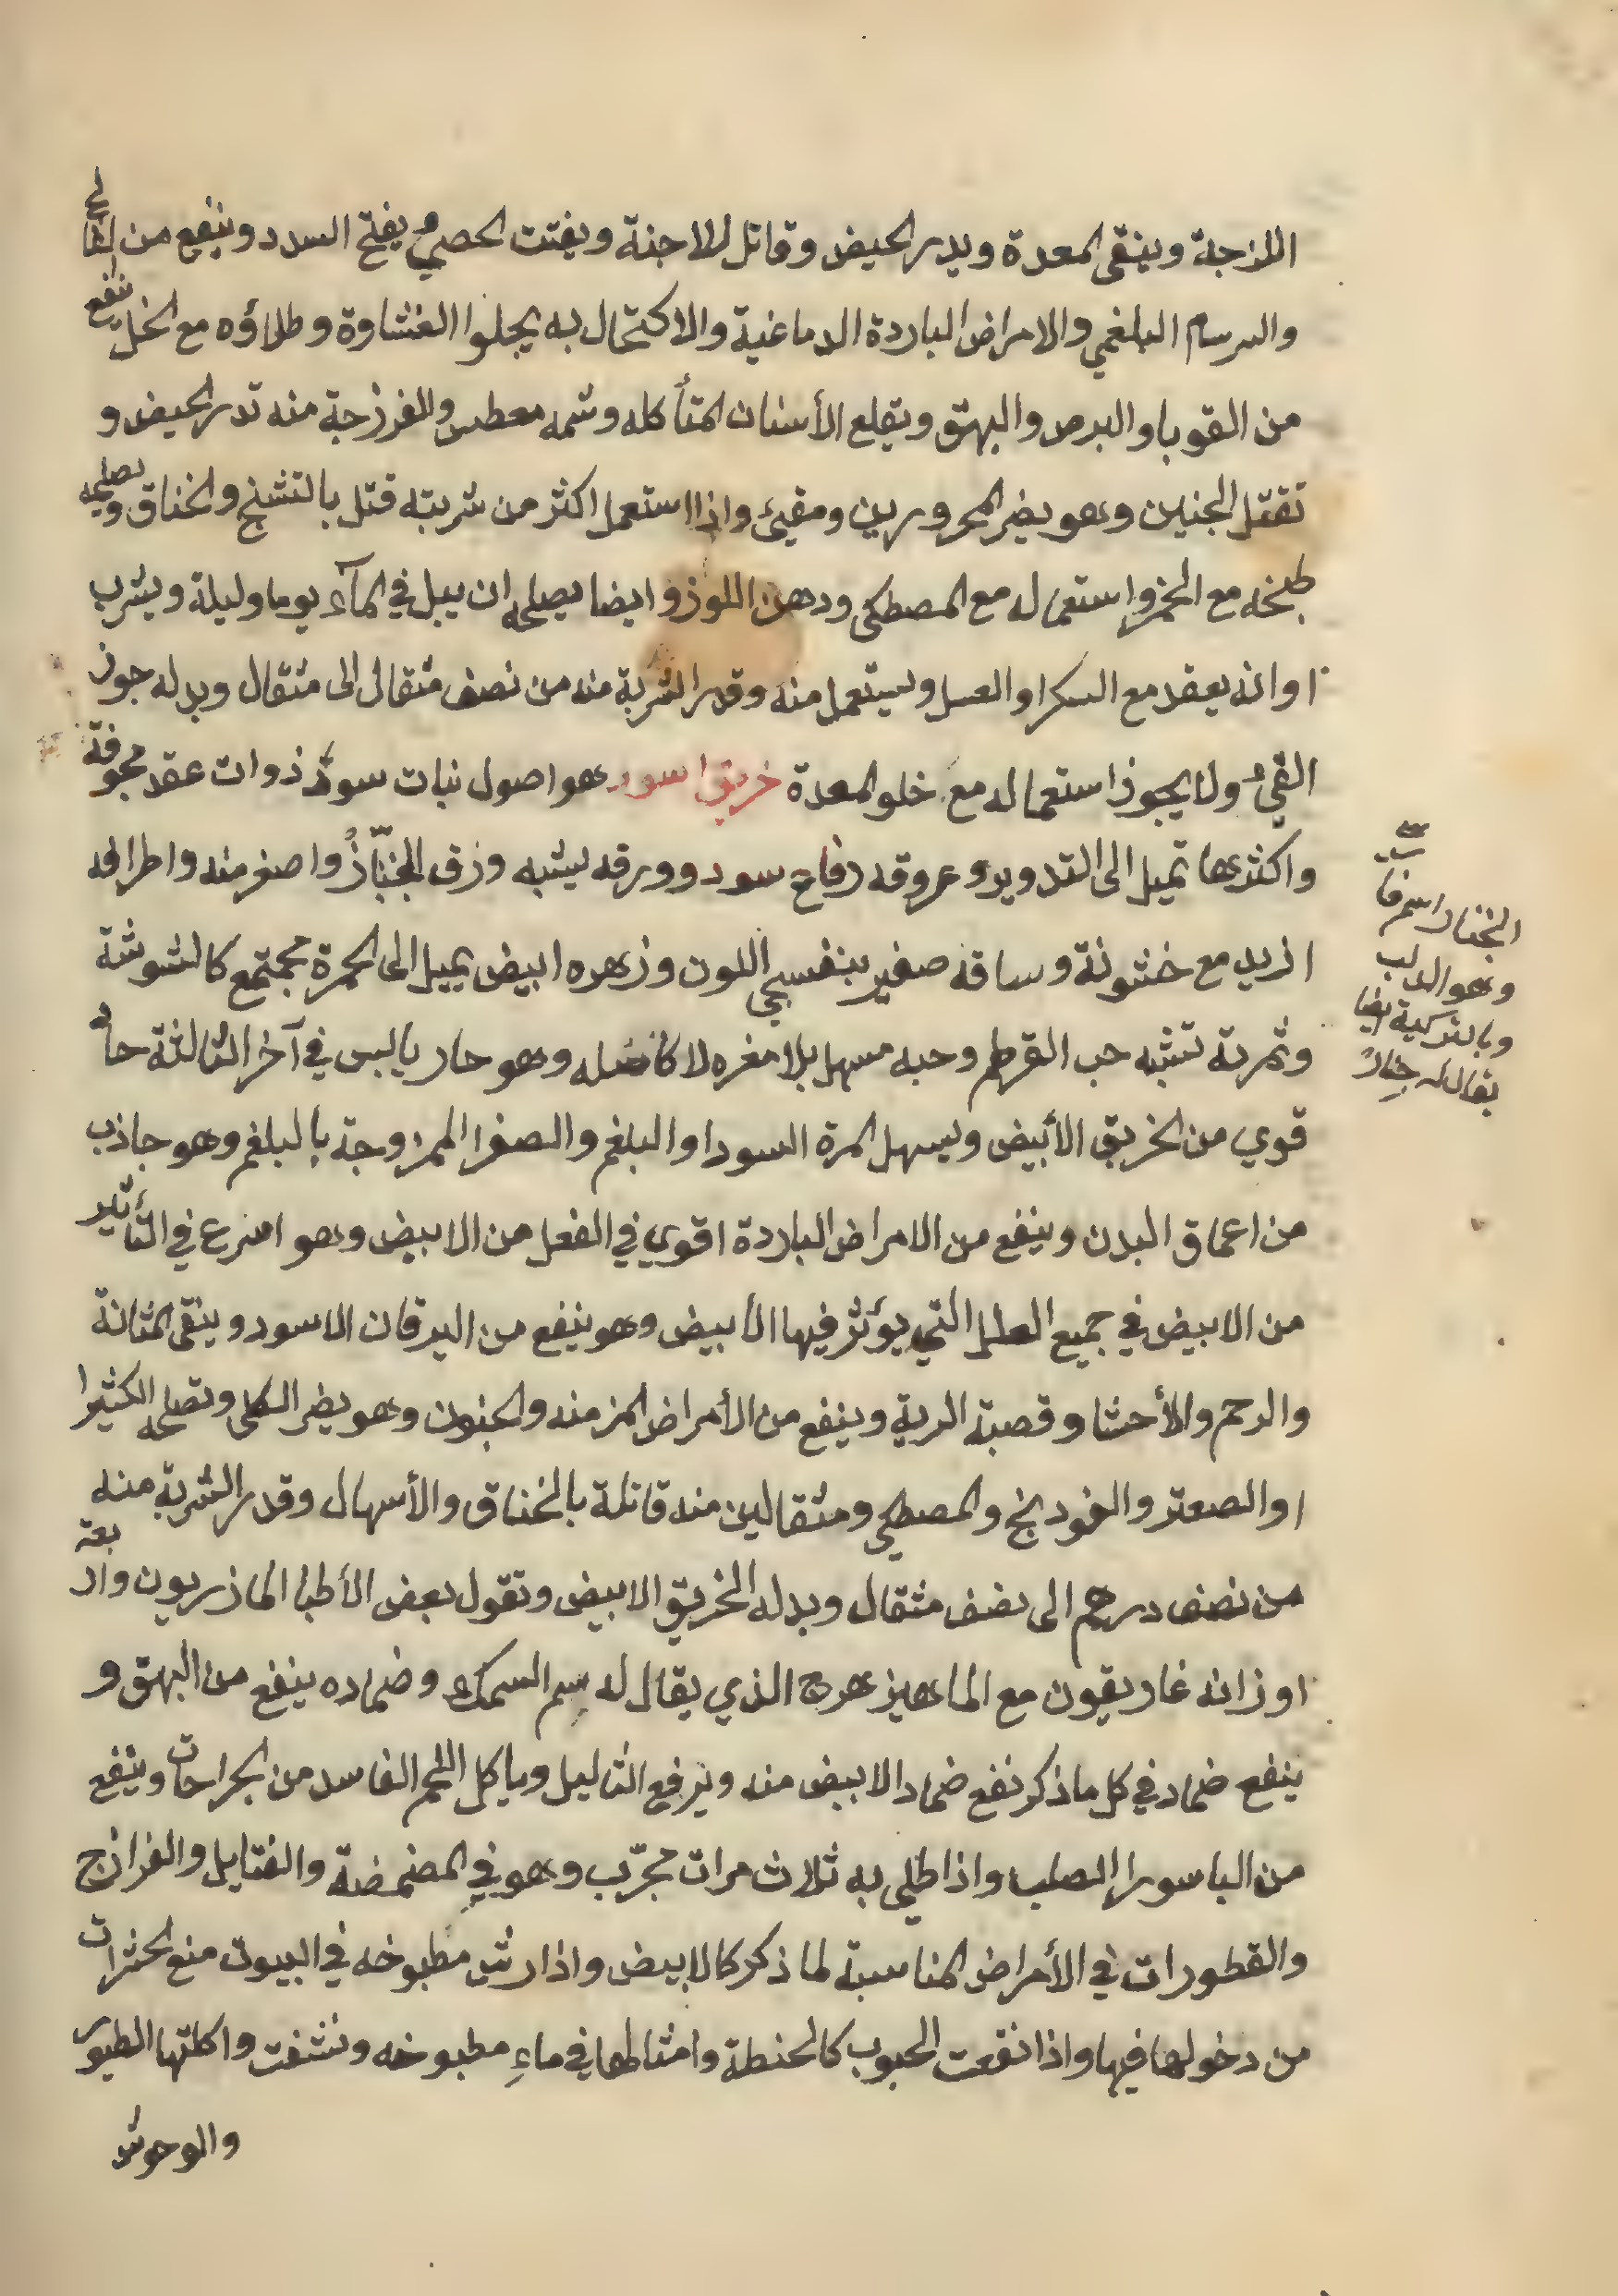 اللزجة وينقى المعدة ويدر الحيض وقاتل للاجنة ويفتت الحصيٰ ويفتح السدد وينفع من الفالج
والسرسام البلغمي والامراض الباردة الدماغية والاكتحال به يجلوا الغشاوة وطلاؤه مع الخل ينفع
من القوبا والبرص والبهق ويقلع الأسنان المتأكله وشمه معطس والفرزجة منه تدر الحيض و
تقتل الجنين وهو يضر المحرورين ومقيئ واذا استعمل اكثر من شربته قتل بالتشنج والخناق ويصلحه
طبخه مع الخمر واستعماله مع المصطكى ودهن اللوز وايضا يصلحه ان يبل في المآء يوما وليلة ويشرب
او انه يعقد مع السكر او العسل ويستعمل منه وقدر الشربة منه من نصف مثقال الى مثقال وبدله جوز
القئ ولا يجوز استعماله مع خلو المعدة خربق اسود هو اصول نبات سود ذوات عقد مجوفة
واكثرها تميل الى التدوير وعروقه رفاع سود وورقه يشبه ورق الجنّار واصغر منه واطرافه
ازيد مع خشونة وساقه صغير بنفسجي اللون وزهره ابيض يميل الى الحمرة مجتمع كالشوشة
وثمرته تشبه حب القرطم وحبه مسهل بلا مغره لا كاصله وهو حار يابس في آخر الثالثة حاد
قوي من الخربق الأبيض ويسهل المرة السودا والبلغم والصفرا الممزوجة بالبلغم وهو جاذب
من اعماق البدن وينفع من الامراض الباردة اقوي في الفعل من الابيض وهو اسرع في التأثير
من الابيض في جميع العلل التي يؤثر فيها الأبيض وهو ينفع من اليرقان الاسود وينقى المثانة
والرحم والأحشا وقصبة الرية وينفع من الأمراض المزمنه والجنون وهو يضر الكلى وتصلحه الكثيرا
او الصعتر والفودنج والمصطكي ومثقالين منه قاتلة بالخناق والأسهال وقدر الشربة منه
من نصف درهم الى نصف مثقال وبدله الخربق الابيض وتقول بعض الأطبا المازريون واربعة
اوزانه غاريقون مع الماهيزهرج الذي يقال له سم السمك وضماده ينفع من البهق و
ينفع ضماد في كل ما ذكر نفع ضماد الابيض منه ويرفع الثاليل وياكل اللحم الفاسد من الجراحات وينفع
من الباسور الصلب واذا طلي به ثلاث مرات مجرّب وهو في المضمضة والفتايل والفرازج
والقطورات في الأمراض المناسبة لما ذكر كالابيض واذا رش مطبوخه في البيوت منع الحشرات
من دخولها فيها واذا نقعت الحبوب كالحنطة وامثالها في ماءِ مطبوخه ونشفت واكلتها الطيور
والوحوش
الجنار اسم فا
رسي
وهو الدلب
وبالتركية ايضا
يقال له جنارْ